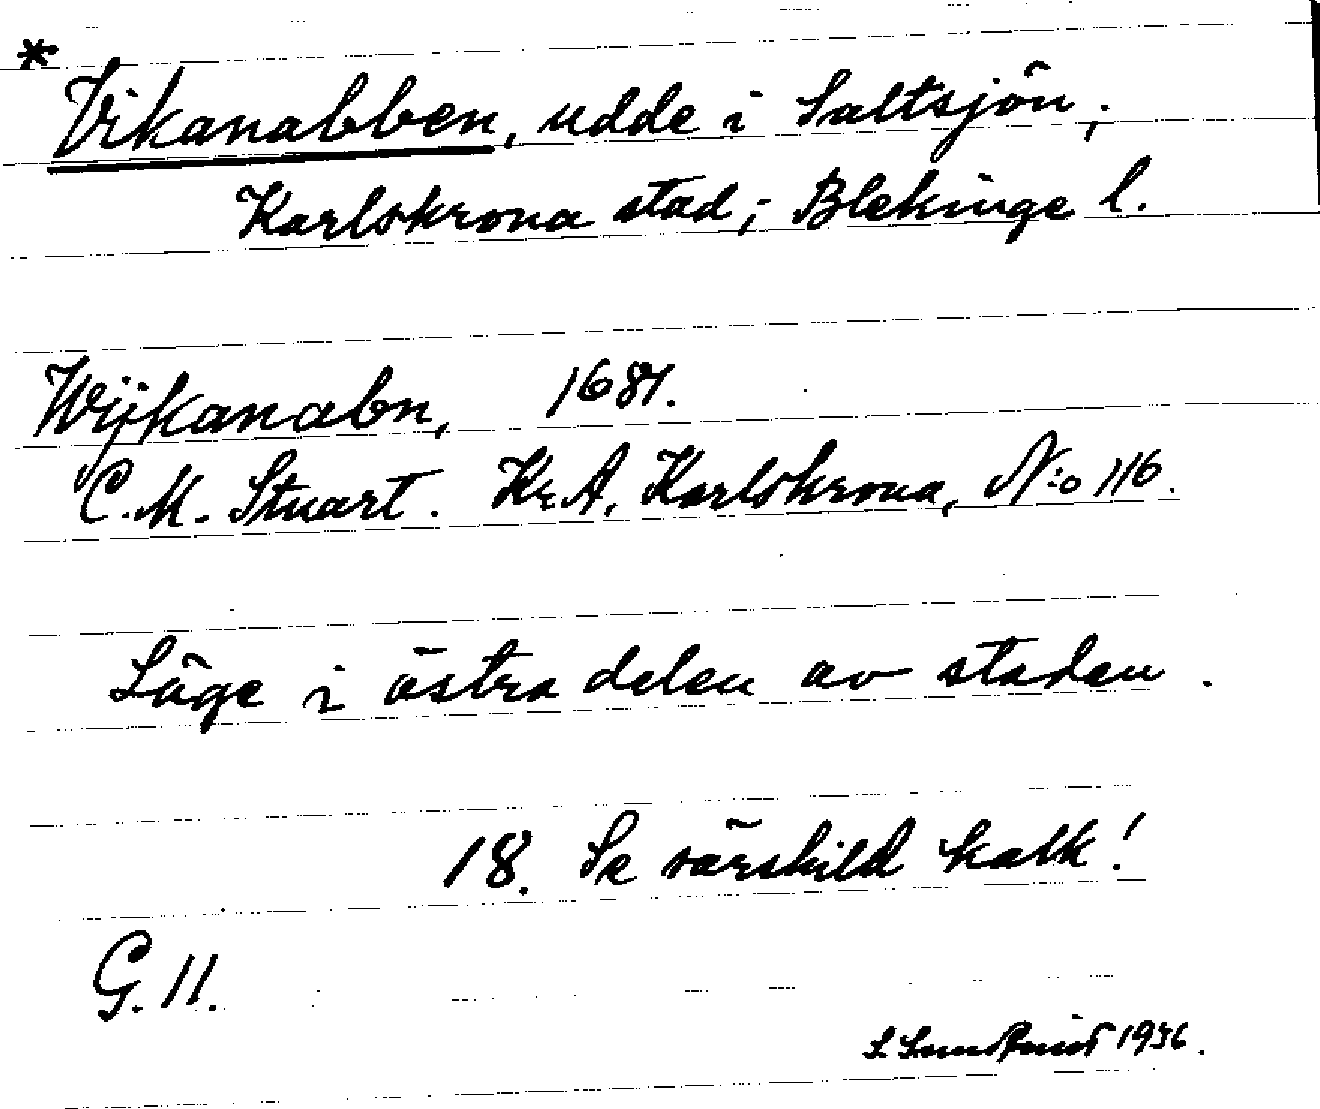 * Vikanabben, udde i Saltsjön;
Karlskrona stad; Blekinge l.
Wijkanabn, 1681.
C. M. Stuart. Kr.A. Karlskrona, N:o 116.
Läge i östra delen av staden.
18. Se särskild kalk!
G. 11.
1936.